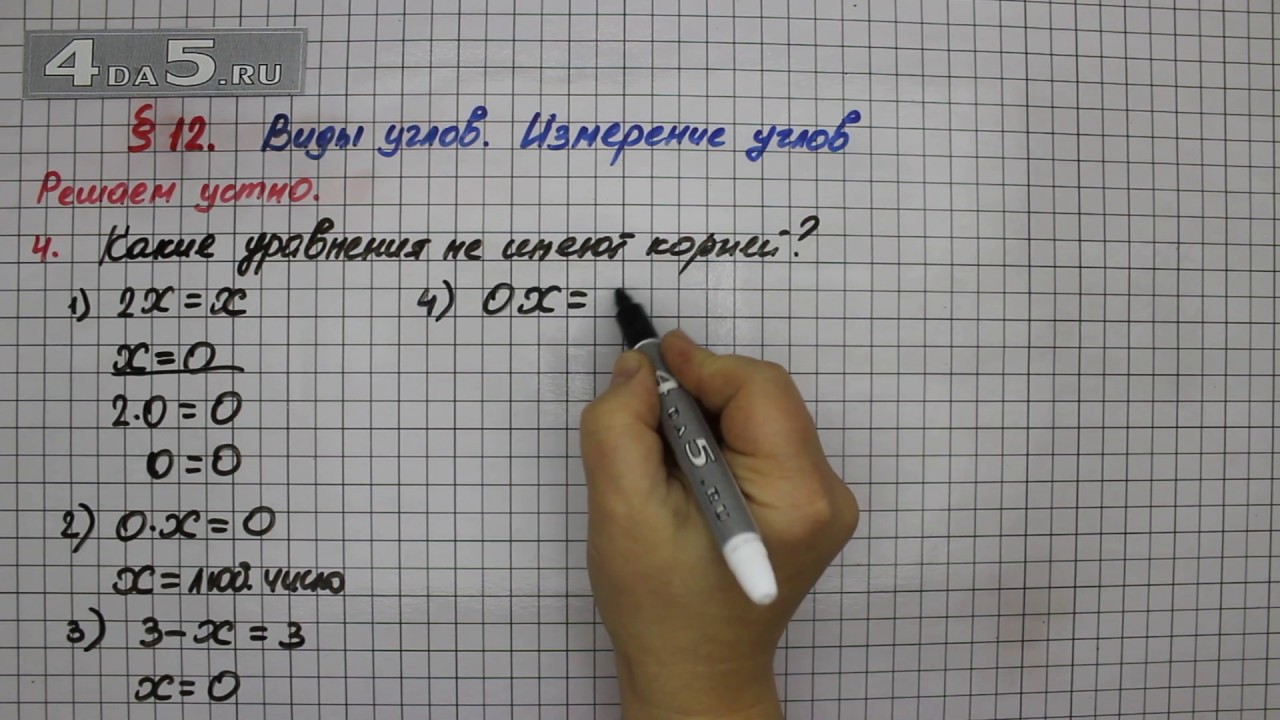 4DA5.RU
§ 12. Виды углов. Измерение углов
Решаем устно.
4. Какие уравнения не имеют корней?
1) 2x = x
x = 0
2·0 = 0
0 = 0
2) 0·x = 0
x = люб. число
3) 3 - x = 3
x = 0
4) 0x =
4DA5.RU